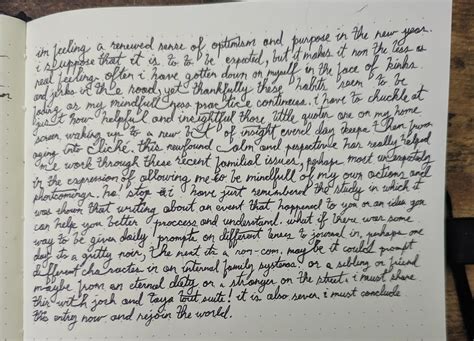 im feeling a renewed sense of optimism and purpose in the new year.
i suppose that it is to be expected, but it makes it non the less a
real feeling. often i have gotten down on myself in the face of kinks
and jerks in the road, yet thankfully these habits seem to be
fading as my mindfulness practice continues. i have to chuckle at
just how helpful and insightful those little quotes are on my home
screen. waking up to a new bit of insight every day keeps them from
aging into cliché. this newfound calm and perspective has really helped
me work through these recent familial issues, perhaps most unexpectedly
in the expression of allowing me to be mindfull of my own actions and
shortcomings. ha! stop it! i have just remembered the study in which it
was shown that writing about an event that happened to you or an idea you
can help you better proccess and understand. what if there was some
way to be given daily prompts on different lenses to journal in, perhaps one
day its a gritty noir. the next its a rom-com. maybe it could prompt
different characters in an internal family systems. or a sibling or friend
maybe from an eternal diety or a stranger on the street. i must share
this with josh and taya tout suite! it is also seven. i must conclude
this entry now and rejoin the world.